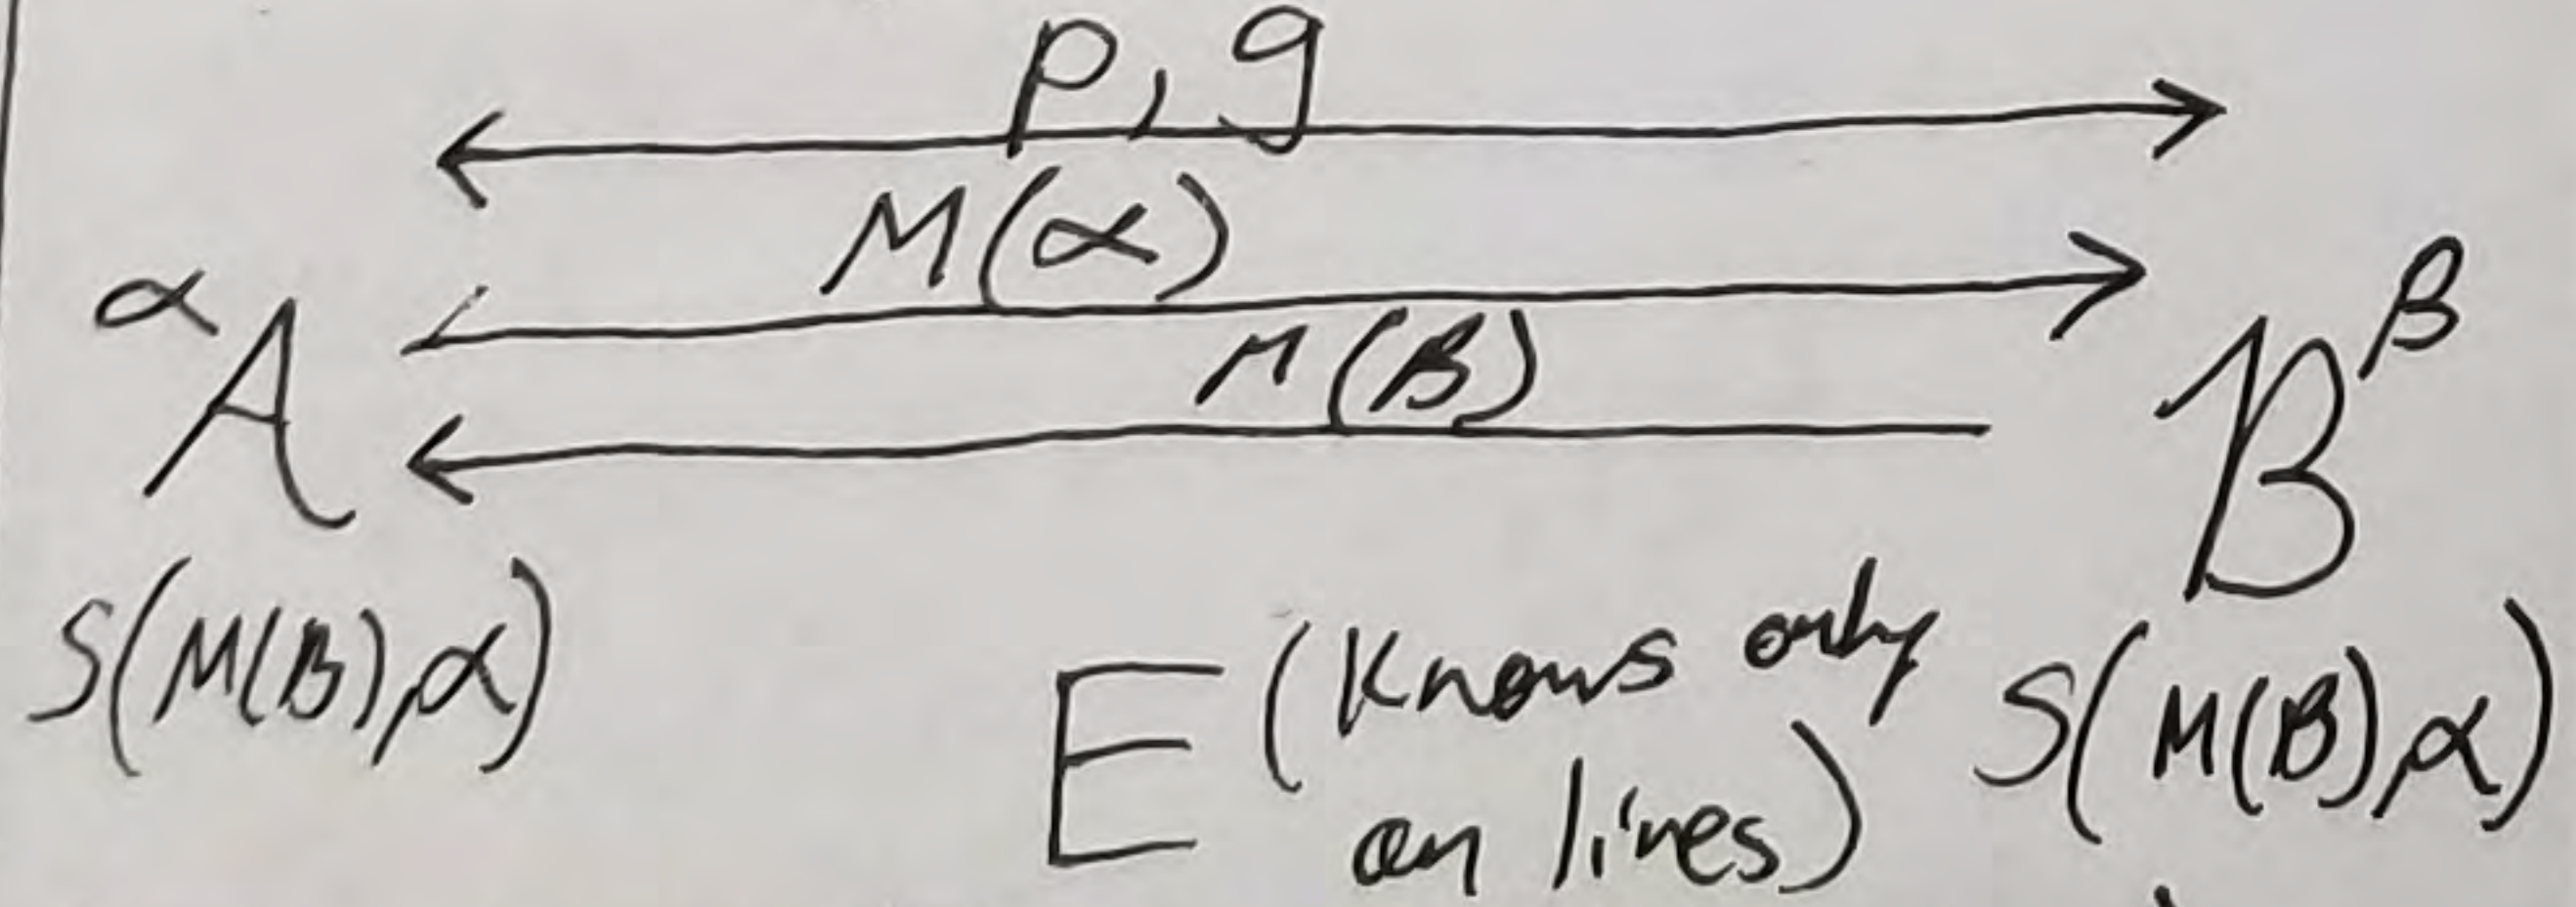 p, g
M(α)
α A
M(β)
B β
S(M(β), α)
E (Knows only
on lines)
S(M(β), α)